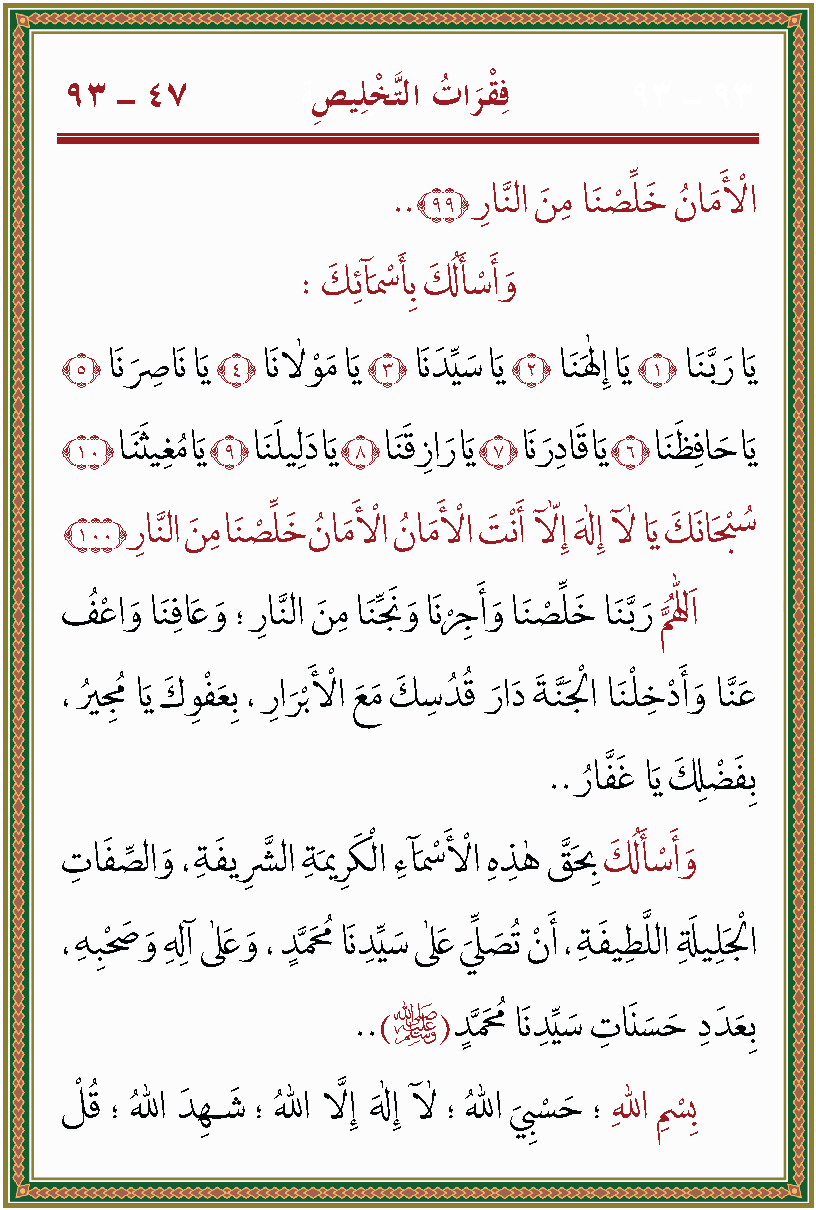 فِقْرَاتُ التَّخْلِيصِ ٤٧ ـ ٩٣
الْأَمَانُ خَلِّصْنَا مِنَ النَّارِ ﴿٩٩﴾..
وَأَسْأَلُكَ بِأَسْمَآئِكَ :
يَا رَبَّنَا ﴿١﴾ يَا إِلٰهَنَا ﴿٢﴾ يَا سَيِّدَنَا ﴿٣﴾ يَا مَوْلَانَا ﴿٤﴾ يَا نَاصِرَنَا ﴿٥﴾
يَا حَافِظَنَا ﴿٦﴾ يَا قَادِرَنَا ﴿٧﴾ يَا رَازِقَنَا ﴿٨﴾ يَا دَلِيلَنَا ﴿٩﴾ يَا مُغِيثَنَا ﴿١٠﴾
سُبْحَانَكَ يَا لَآ إِلٰهَ إِلَّآ أَنْتَ الْأَمَانُ الْأَمَانُ خَلِّصْنَا مِنَ النَّارِ ﴿١٠٠﴾
اَللّٰهُمَّ رَبَّنَا خَلِّصْنَا وَأَجِرْنَا وَنَجِّنَا مِنَ النَّارِ ؛ وَعَافِنَا وَاعْفُ
عَنَّا وَأَدْخِلْنَا الْجَنَّةَ دَارَ قُدُسِكَ مَعَ الْأَبْرَارِ ، بِعَفْوِكَ يَا مُجِيرُ ،
بِفَضْلِكَ يَا غَفَّارُ..
وَأَسْأَلُكَ بِحَقِّ هٰذِهِ الْأَسْمَآءِ الْكَرِيمَةِ الشَّرِيفَةِ ، وَالصِّفَاتِ
الْجَلِيلَةِ اللَّطِيفَةِ ، أَنْ تُصَلِّيَ عَلٰى سَيِّدِنَا مُحَمَّدٍ ، وَعَلٰى آلِهِ وَصَحْبِهِ ،
بِعَدَدِ حَسَنَاتِ سَيِّدِنَا مُحَمَّدٍ (ﷺ)..
بِسْمِ اللهِ ؛ حَسْبِيَ اللهُ ؛ لَآ إِلٰهَ إِلَّا اللهُ ؛ شَهِدَ اللهُ ؛ قُلْ